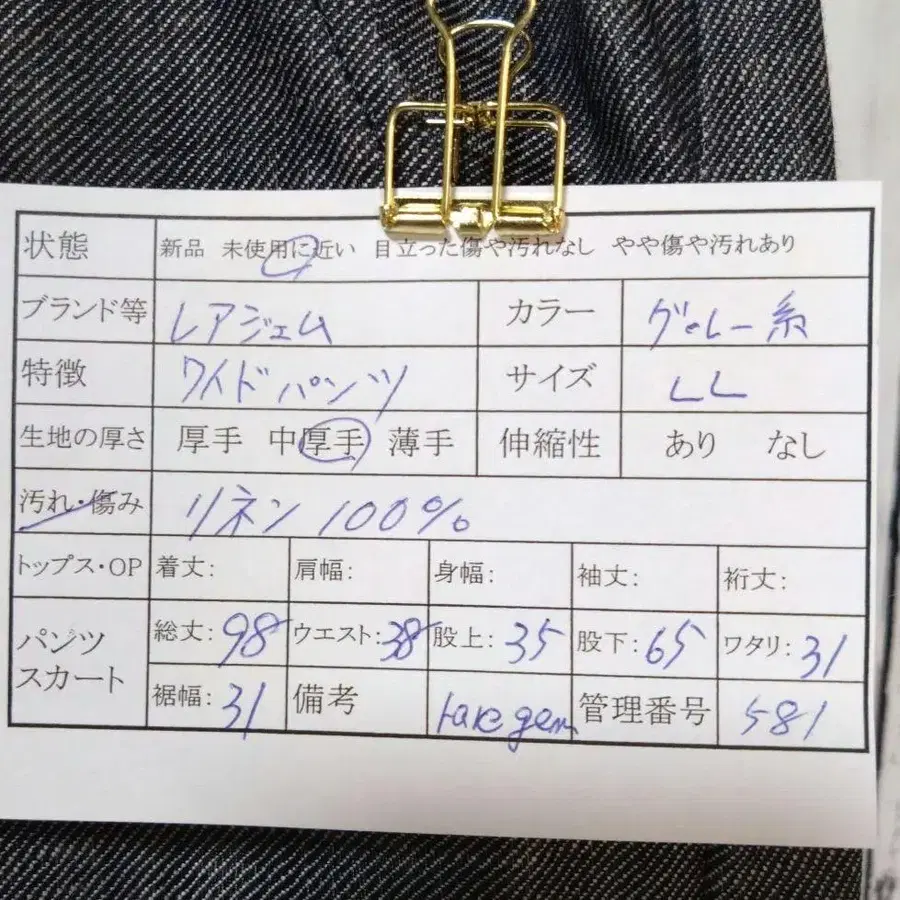 状態 新品 未使用に近い 目立った傷や汚れなし やや傷や汚れあり
ブランド等 レアジェム カラー グレー系
特徴 ワイドパンツ サイズ LL
生地の厚さ 厚手 中厚手 薄手 伸縮性 あり なし
汚れ・傷み リネン 100%
トップス・OP 着丈: 肩幅: 身幅: 袖丈: 裄丈:
パンツ スカート 総丈: 98 ウエスト: 38 股上: 35 股下: 65 ワタリ: 31
裾幅: 31 備考 rare gem 管理番号 581